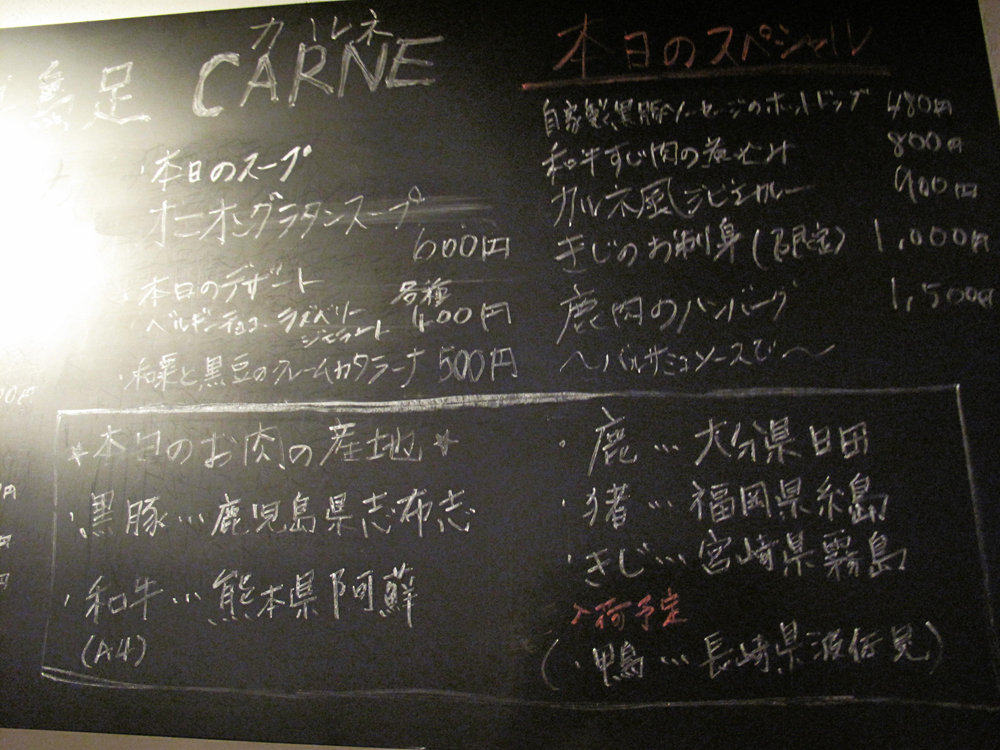 カルネ
鳥足 CARNE
・本日のスープ
オニオングラタンスープ
600円
・本日のデザート 各種
ベルギーチョコ・ラズベリー 400円
ジェラート
・和栗と黒豆のクレームカタラーナ 500円
本日のスペシャル
自家製黒豚ソーセージのホットドッグ 480円
和牛すじ肉の煮込み 800円
カルネ風ジビエカレー 900円
きじのお刺身(限定) 1,000円
鹿肉のハンバーグ 1,500円
〜バルサミコソースで〜
☆本日のお肉の産地☆
・黒豚…鹿児島県志布志
・和牛…熊本県阿蘇
(A4)
・鹿…大分県日田
・猪…福岡県糸島
・きじ…宮崎県霧島
入荷予定
(・鴨…長崎県波佐見)